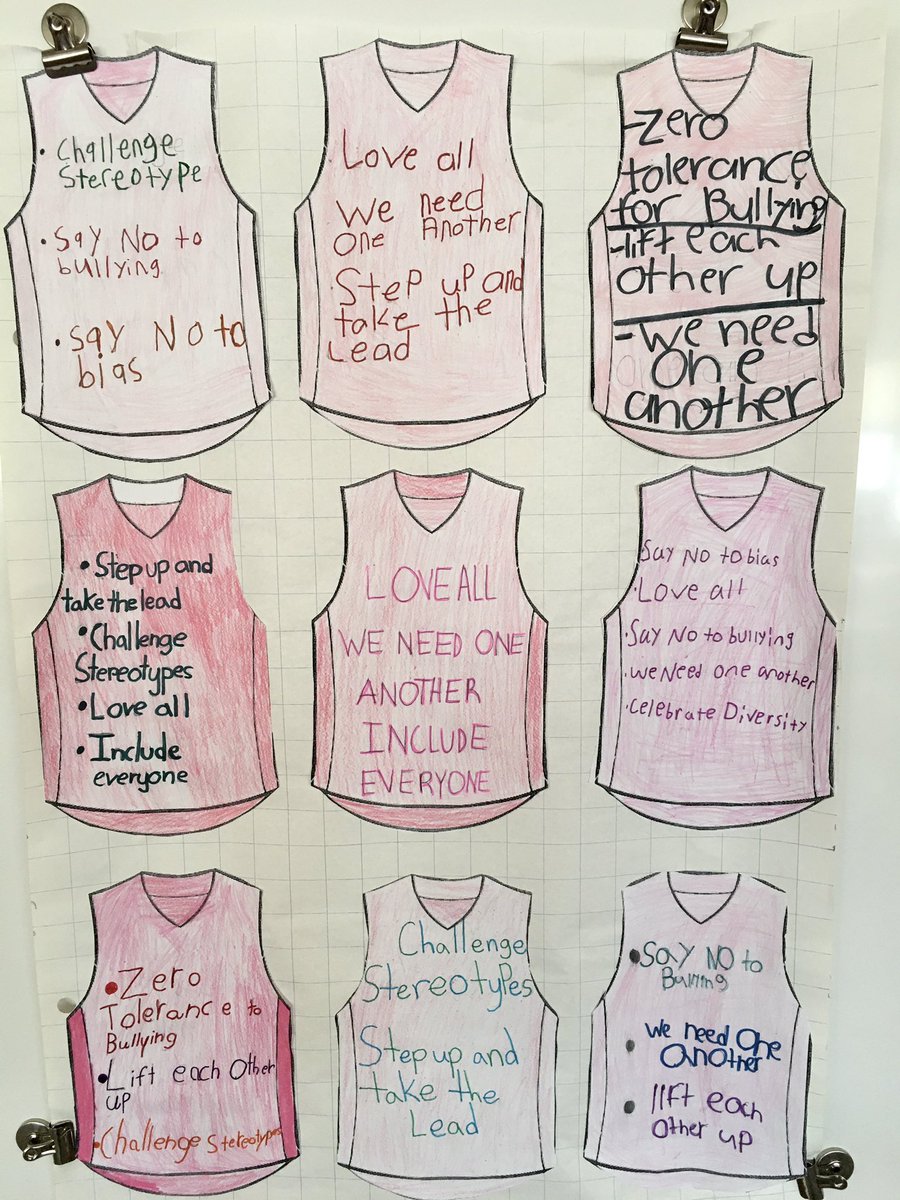 • Challenge
Stereotype
• Say No to
bullying
• Say No to
bias
Love all
We need
one Another
Step up and
take the
Lead
-Zero
tolerance
for Bullying
-lift each
other up
-we need
one
another
• Step up and
take the lead
• Challenge
Stereotypes
• Love all
• Include
everyone
LOVE ALL
WE NEED ONE
ANOTHER
INCLUDE
EVERYONE
Say No to bias
• Love all
• Say No to bullying
• we Need one another
• Celebrate Diversity
• Zero
Tolerance to
Bullying
• Lift each Other
up
• Challenge Stereotypes
Challenge
Stereotypes
Step up and
take the
Lead
• Say NO to
we need One
another
• lift each
other up